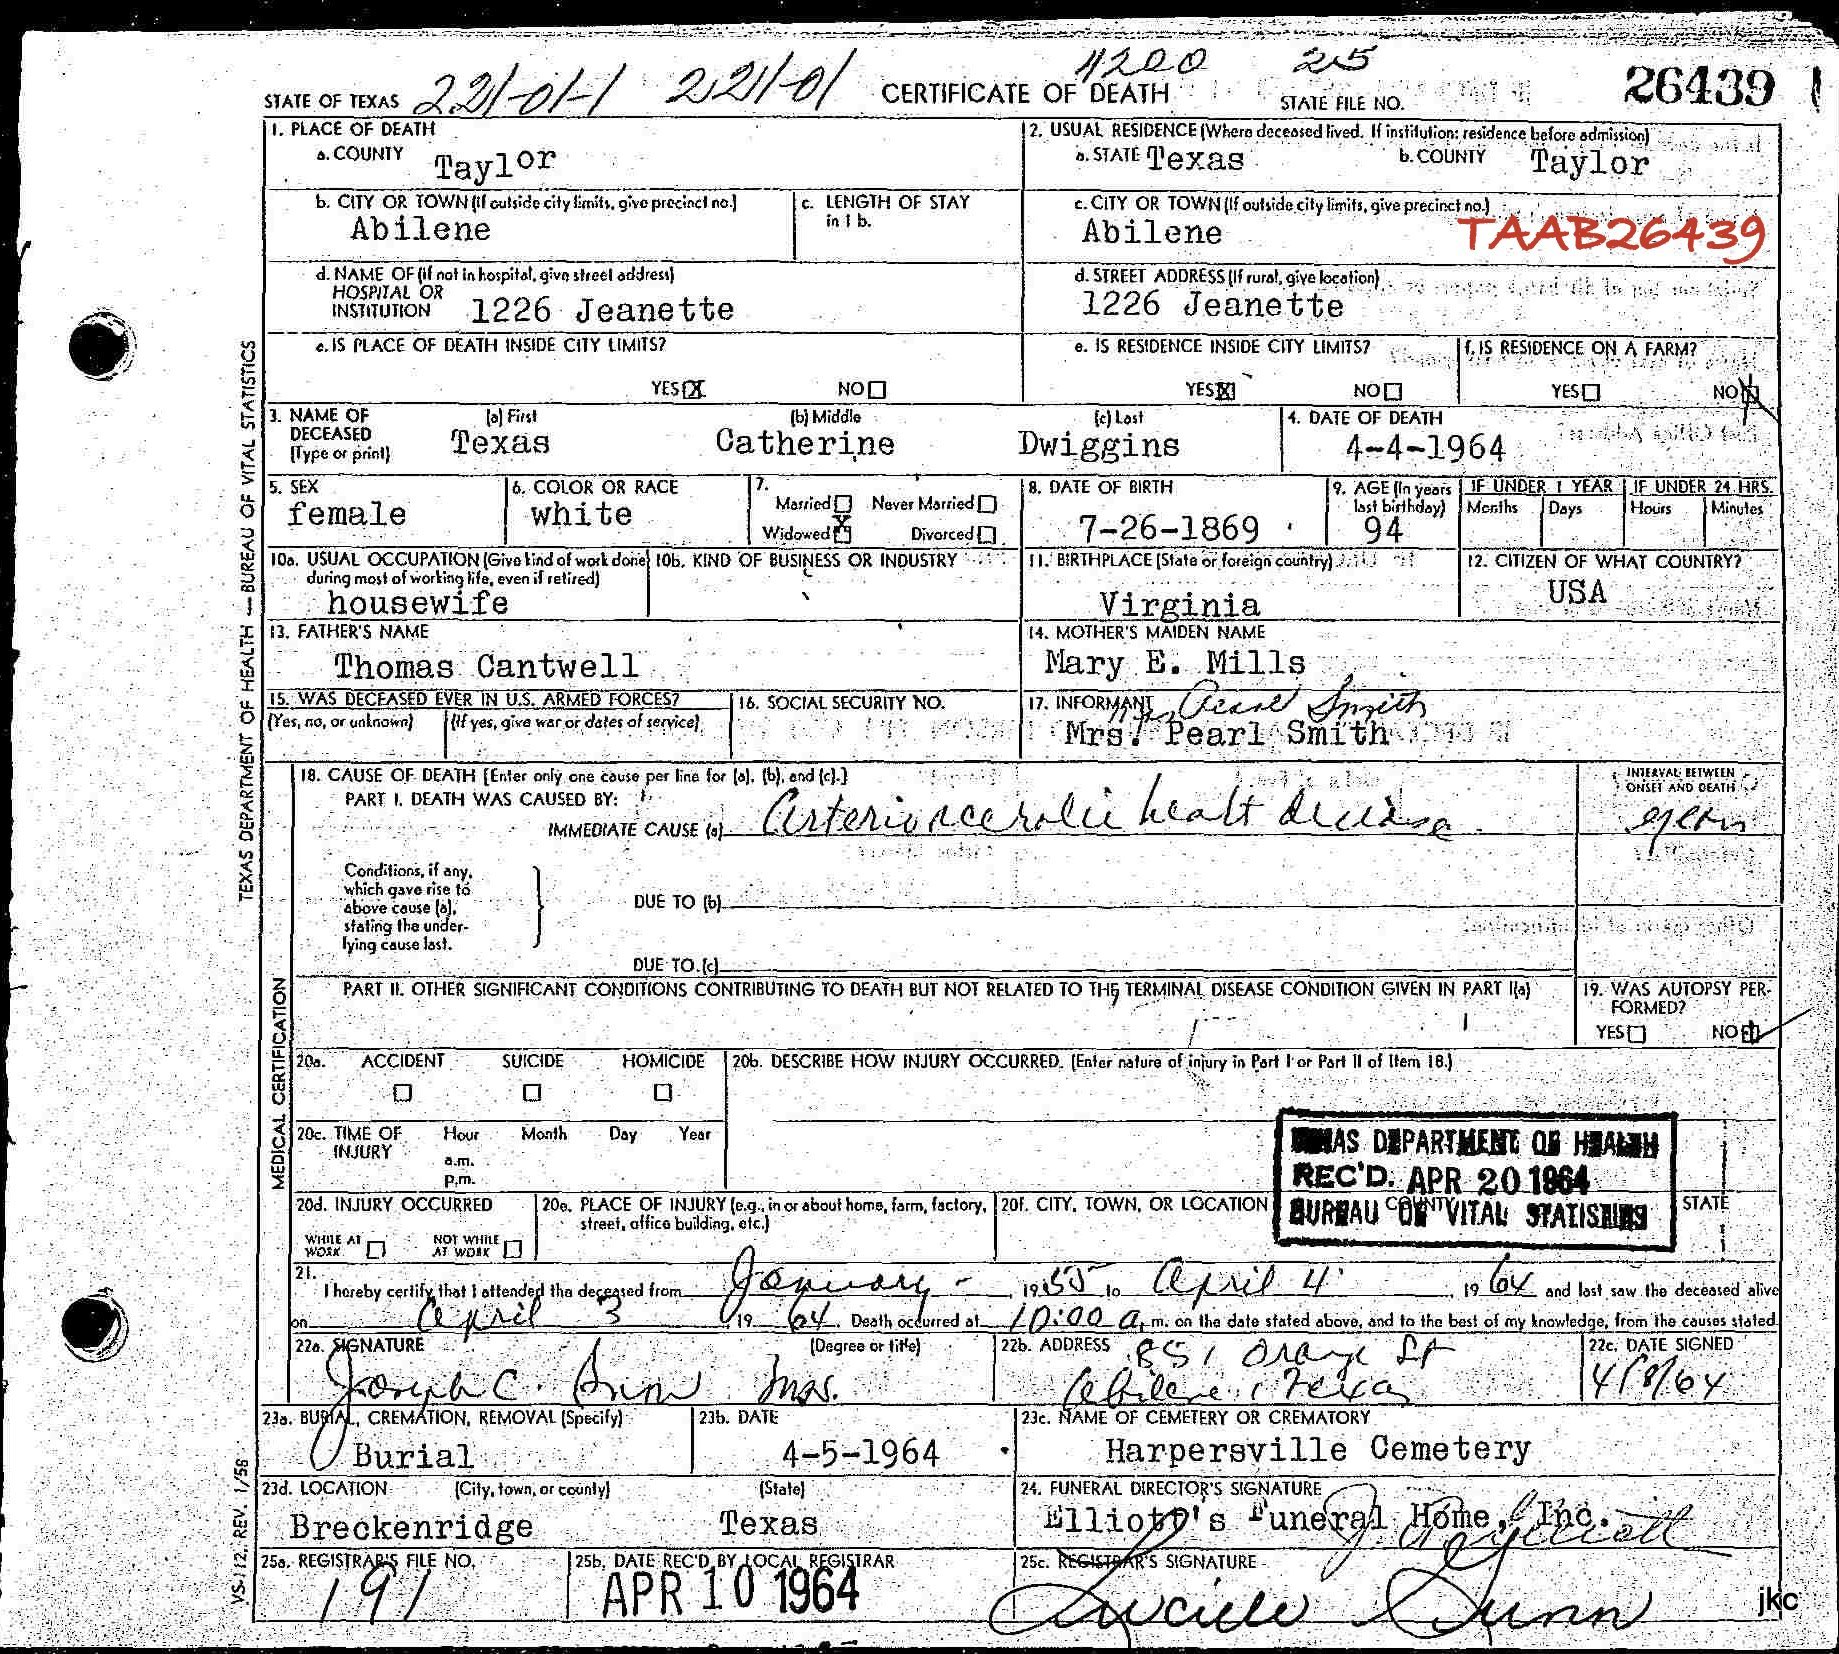 STATE OF TEXAS 221-01-1 221-01 CERTIFICATE OF DEATH 4200 25 STATE FILE NO. 26439
1. PLACE OF DEATH
a. COUNTY Taylor
2. USUAL RESIDENCE (Where deceased lived. If institution: residence before admission)
a. STATE Texas b. COUNTY Taylor
b. CITY OR TOWN (If outside city limits, give precinct no.) Abilene
c. LENGTH OF STAY in 1 b.
c. CITY OR TOWN (If outside city limits, give precinct no.) Abilene
TAAB26439
d. NAME OF (If not in hospital, give street address) HOSPITAL OR INSTITUTION 1226 Jeanette
d. STREET ADDRESS (If rural, give location) 1226 Jeanette
e. IS PLACE OF DEATH INSIDE CITY LIMITS? YES X NO
e. IS RESIDENCE INSIDE CITY LIMITS? YES X NO
f. IS RESIDENCE ON A FARM? YES NO X
3. NAME OF DECEASED (Type or print) (a) First Texas (b) Middle Catherine (c) Last Dwiggins
4. DATE OF DEATH 4-4-1964
5. SEX female
6. COLOR OR RACE white
7. Married Never Married Widowed X Divorced
8. DATE OF BIRTH 7-26-1869
9. AGE (In years last birthday) 94
IF UNDER 1 YEAR Months Days
IF UNDER 24 HRS. Hours Minutes
10a. USUAL OCCUPATION (Give kind of work done during most of working life, even if retired) housewife
10b. KIND OF BUSINESS OR INDUSTRY
11. BIRTHPLACE (State or foreign country) Virginia
12. CITIZEN OF WHAT COUNTRY? USA
13. FATHER'S NAME Thomas Cantwell
14. MOTHER'S MAIDEN NAME Mary E. Mills
15. WAS DECEASED EVER IN U.S. ARMED FORCES? (Yes, no, or unknown) (If yes, give war or dates of service)
16. SOCIAL SECURITY NO.
17. INFORMANT Mrs Pearl Smith
Mrs. Pearl Smith
MEDICAL CERTIFICATION
18. CAUSE OF DEATH [Enter only one cause per line for (a), (b), and (c).]
INTERVAL BETWEEN ONSET AND DEATH
PART I. DEATH WAS CAUSED BY:
IMMEDIATE CAUSE (a) heart disease
Conditions, if any, which gave rise to above cause (a), stating the underlying cause last.
DUE TO (b)
DUE TO (c)
PART II. OTHER SIGNIFICANT CONDITIONS CONTRIBUTING TO DEATH BUT NOT RELATED TO THE TERMINAL DISEASE CONDITION GIVEN IN PART I(a)
19. WAS AUTOPSY PERFORMED? YES NO
20a. ACCIDENT SUICIDE HOMICIDE
20b. DESCRIBE HOW INJURY OCCURRED. (Enter nature of injury in Part I or Part II of Item 18.)
20c. TIME OF INJURY Hour Month Day Year a.m. p.m.
TEXAS DEPARTMENT OF HEALTH
REC'D. APR 20 1964
BUREAU OF VITAL STATISTICS
20d. INJURY OCCURRED WHILE AT WORK NOT WHILE AT WORK
20e. PLACE OF INJURY (e.g., in or about home, farm, factory, street, office building, etc.)
20f. CITY, TOWN, OR LOCATION COUNTY STATE
21. I hereby certify that I attended the deceased from January - 1955 to April 4 1964 and last saw the deceased alive
on April 3 1964. Death occurred at 10:00 a.m. on the date stated above, and to the best of my knowledge, from the causes stated.
22a. SIGNATURE (Degree or title) Joseph C.
22b. ADDRESS 851 Orange St Abilene, Texas
22c. DATE SIGNED 4/8/64
23a. BURIAL, CREMATION, REMOVAL (Specify) Burial
23b. DATE 4-5-1964
23c. NAME OF CEMETERY OR CREMATORY Harpersville Cemetery
23d. LOCATION (City, town, or county) Breckenridge (State) Texas
24. FUNERAL DIRECTOR'S SIGNATURE Elliott's Funeral Home, Inc. Elliott
25a. REGISTRAR'S FILE NO. 191
25b. DATE REC'D BY LOCAL REGISTRAR APR 10 1964
25c. REGISTRAR'S SIGNATURE Lucille Gunn
jkc
TEXAS DEPARTMENT OF HEALTH — BUREAU OF VITAL STATISTICS
VS-112, REV. 1/58